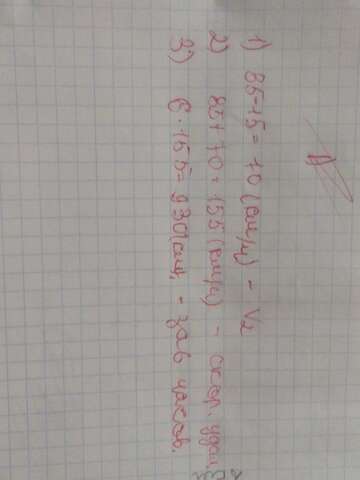 1) 85-15=70(км/ч) - V₂
2) 85+70=155(км/ч) - скор. удал.
3) 6·155=930(км) - за 6 часов.